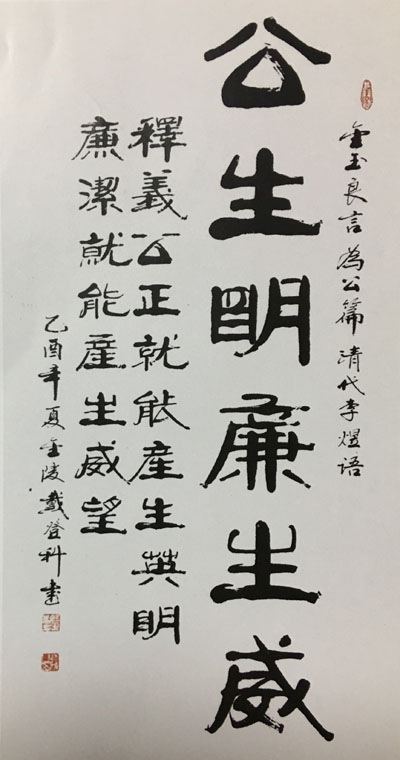 金玉良言為公篇 清代李煜语
公生明廉生威
釋義公正就能産生英明
廉潔就能産生威望
乙酉年夏金陵戴登科書